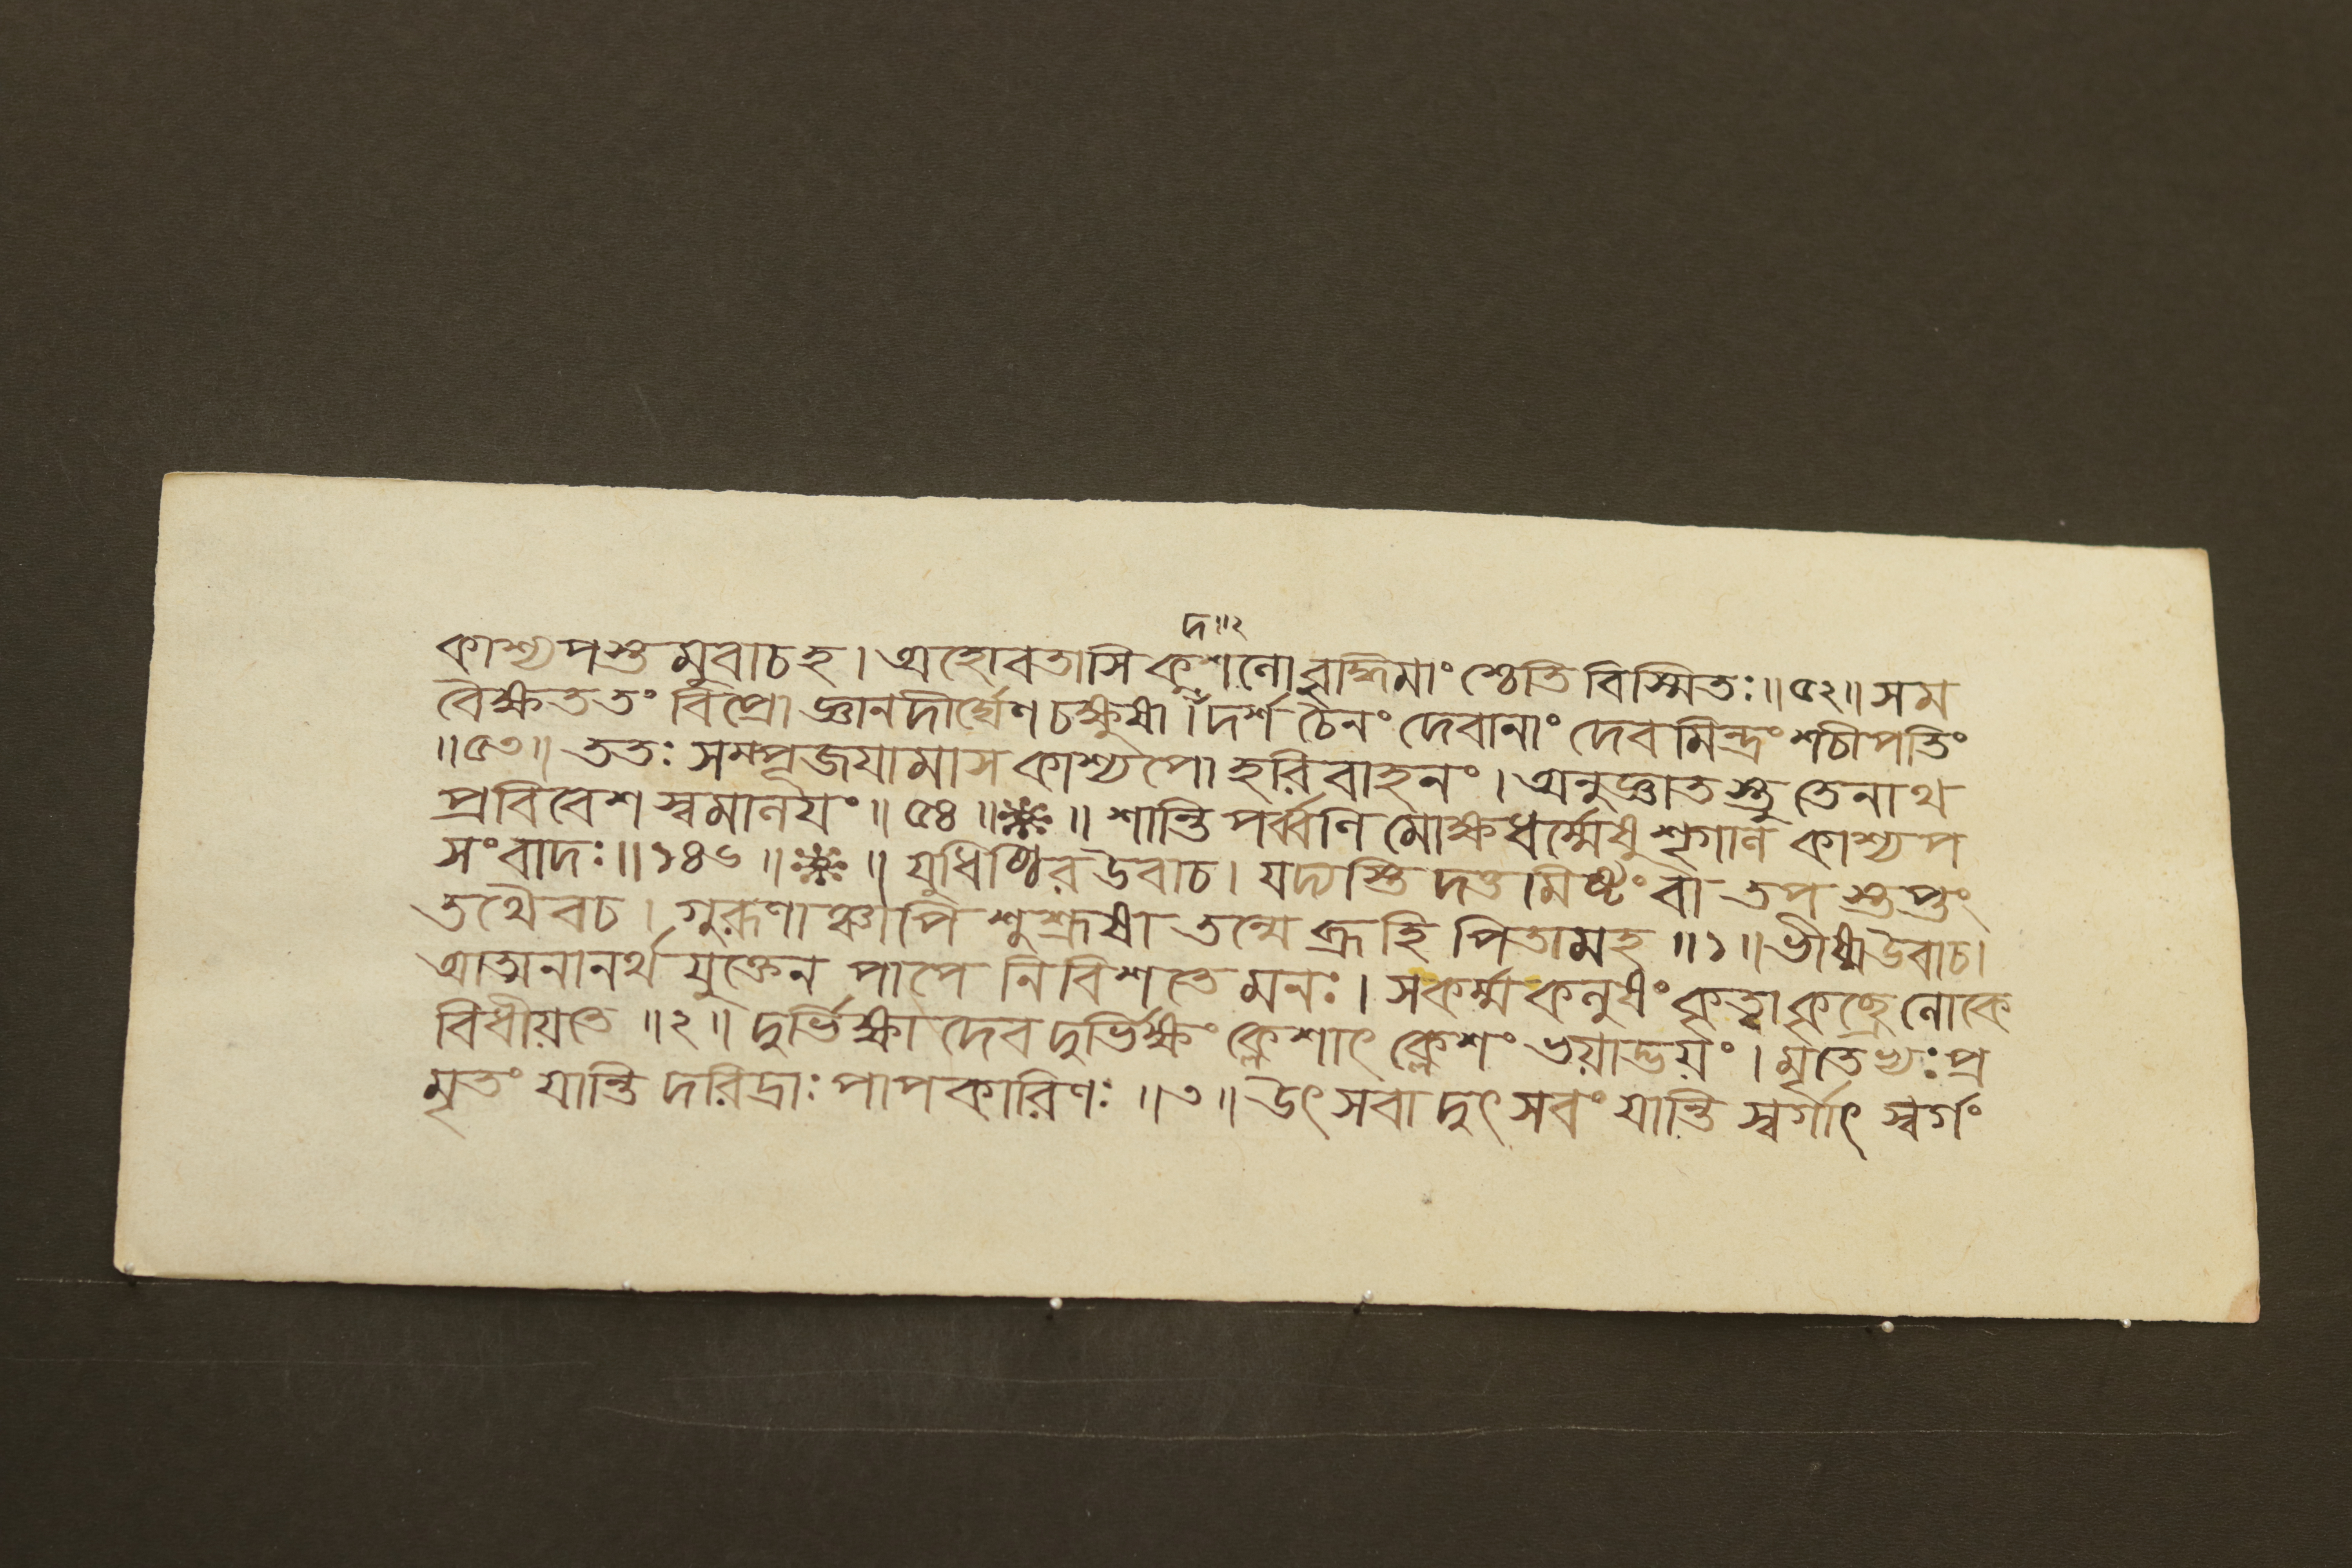 দ॥২
কাশ্যপস্তমুবাচহ। অহোবতাসি কুশলো বুদ্ধিমাংশ্চেতি বিস্মিতঃ॥৫২॥ সম
বৈক্ষততং বিপ্রো জ্ঞানদীর্ঘেণ চক্ষুষা। দর্শ চৈনং দেবানাং দেবমিন্দ্রং শচীপতিং
॥৫৩॥ ততঃ সম্পূজয়ামাস কাশ্যপো হরিবাহনং। অনুজ্ঞাতস্তু তেনাথ
প্রবিবেশ স্বমালয়ং॥৫৪॥❋॥ শান্তিপর্ব্বণি মোক্ষধর্ম্মেষু শৃগাল কাশ্যপ
সংবাদঃ॥১৪৬॥❋॥ যুধিষ্ঠির উবাচ। যদ্যস্তি দত্তমিষ্টং বা তপস্তপ্তং
তথৈবচ। গুরূণাঞ্চাপি শুশ্রূষা তন্মে ব্রূহি পিতামহ॥১॥ ভীষ্ম উবাচ।
আত্মনানর্থযুক্তেন পাপে নিবিশতে মনঃ। সকর্ম্ম কলুষং কৃত্বা কৃচ্ছ্রে লোকে
বিধীয়তে॥২॥ দুর্ভিক্ষাদেব দুর্ভিক্ষং ক্লেশাৎ ক্লেশং ভয়াদ্ভয়ং। মৃতেভ্যঃ প্র
মৃতং যান্তি দরিদ্রাঃ পাপকারিণঃ॥৩॥ উৎসবাদুৎসবং যান্তি স্বর্গাৎ স্বর্গং